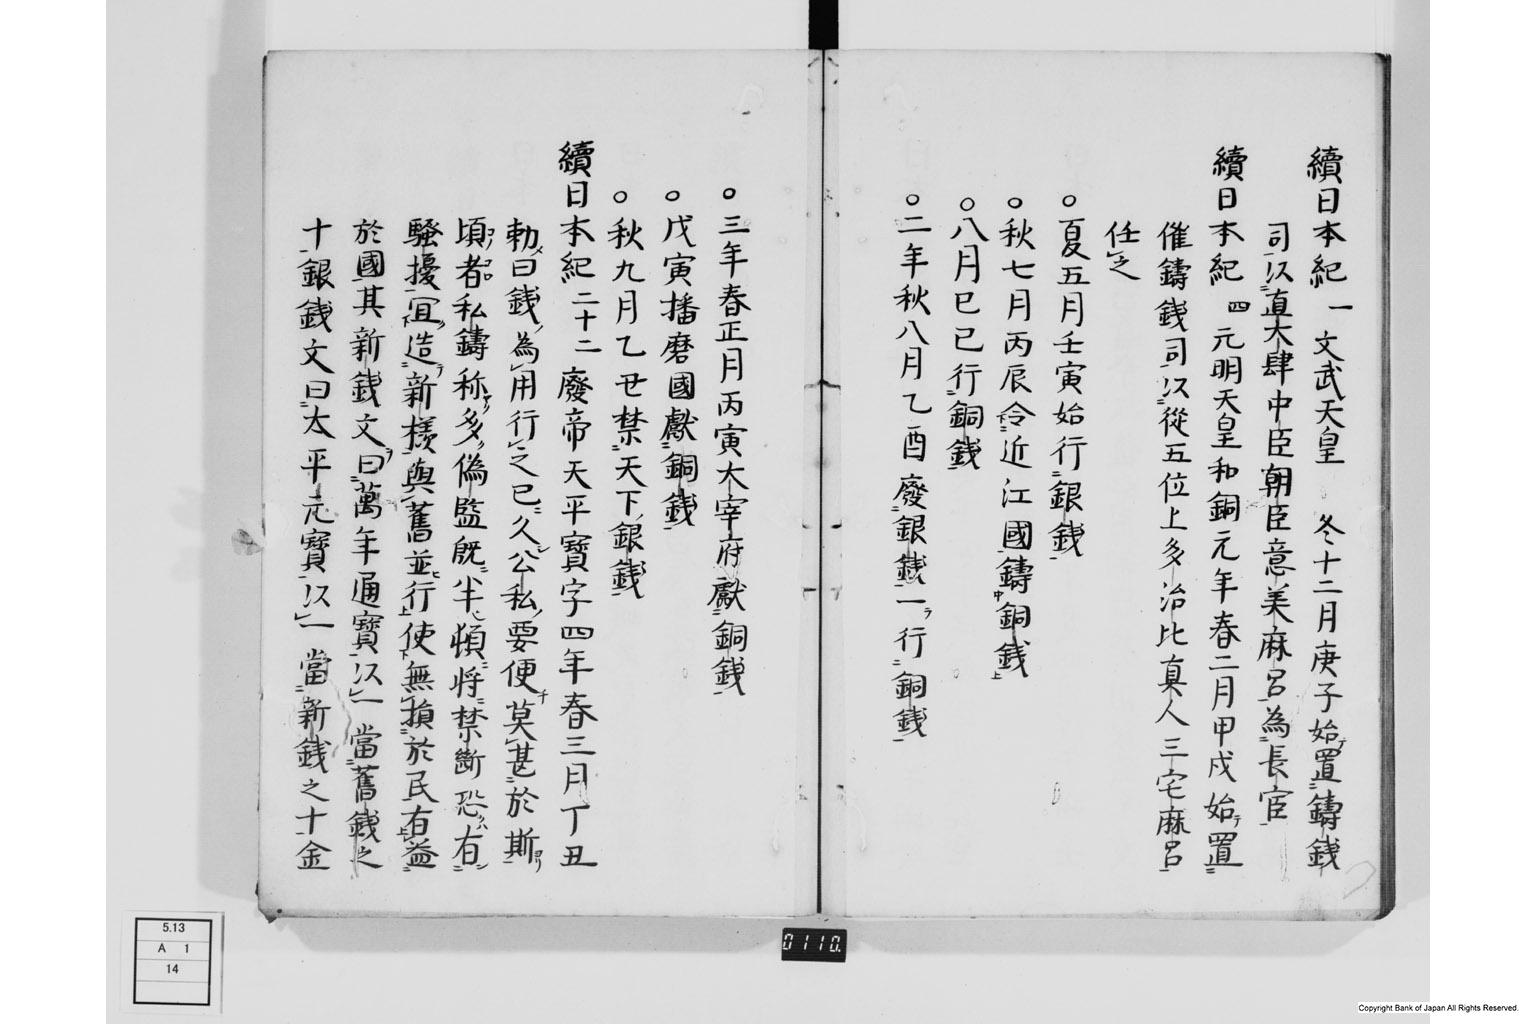 續日本紀一 文武天皇 冬十二月庚子始テ置鑄錢
司以直大肆中臣朝臣意美麻呂為長官
續日本紀四 元明天皇和銅元年春二月甲戌始テ置
催鑄錢司以從五位上多治比真人三宅麻呂
任之
○夏五月壬寅始行銀錢
○秋七月丙辰令近江國鑄銅錢
○八月己巳行銅錢
○二年秋八月乙酉廢銀錢一ラ行銅錢
○三年春正月丙寅大宰府獻銅錢
○戊寅播磨國獻銅錢
○秋九月乙丑禁天下銀錢
續日本紀二十二 廢帝天平寶字四年春三月丁丑
勅曰錢為用行之已久公私要便莫甚於斯
頃者私鑄称多偽監既半頓將禁斷恐有
騷擾宜造新樣與舊並行使無損於民有益
於國其新錢文曰萬年通寶以一當舊錢之
十銀錢文曰大平元寶以一當新錢之十金
5.13
A 1
14
0110.
Copyright Bank of Japan All Rights Reserved.